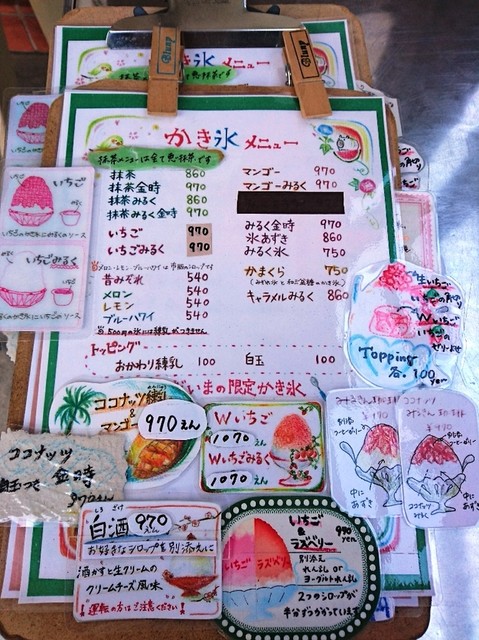 かき氷メニュー
抹茶メニューは全て恵抹茶です
抹茶 860
抹茶金時 970
抹茶みるく 860
抹茶みるく金時 970
いちご 970
いちごみるく 970
昔みぞれ 540
メロン 540
レモン 540
ブルーハワイ 540
マンゴー 970
マンゴーみるく 970
みるく金時 970
氷あずき 860
みるく氷 750
かまくら 750
キャラメルみるく 860
トッピング
おかわり練乳 100
白玉 100
いまの限定かき氷
いちご
いちごみるく
ココナッツ
&
マンゴー
970えん
Wいちご
1070えん
Wいちごみるく
1070えん
生いちご
Wいちご
Topping
各.100
yen
ココナッツ
金時
970えん
中にあずき
ココナッツみるく
中にあずき
白酒 970えん
お好きなシロップを別添えに
酒かすと生クリームの
クリームチーズ風味
運転の方はご注意ください!
いちご
&
ラズベリー
990
yen
いちご
ラズベリー
別添え
れんよし or
ヨーグルトれんよし
2つのシロップが
半分ずつかかっています